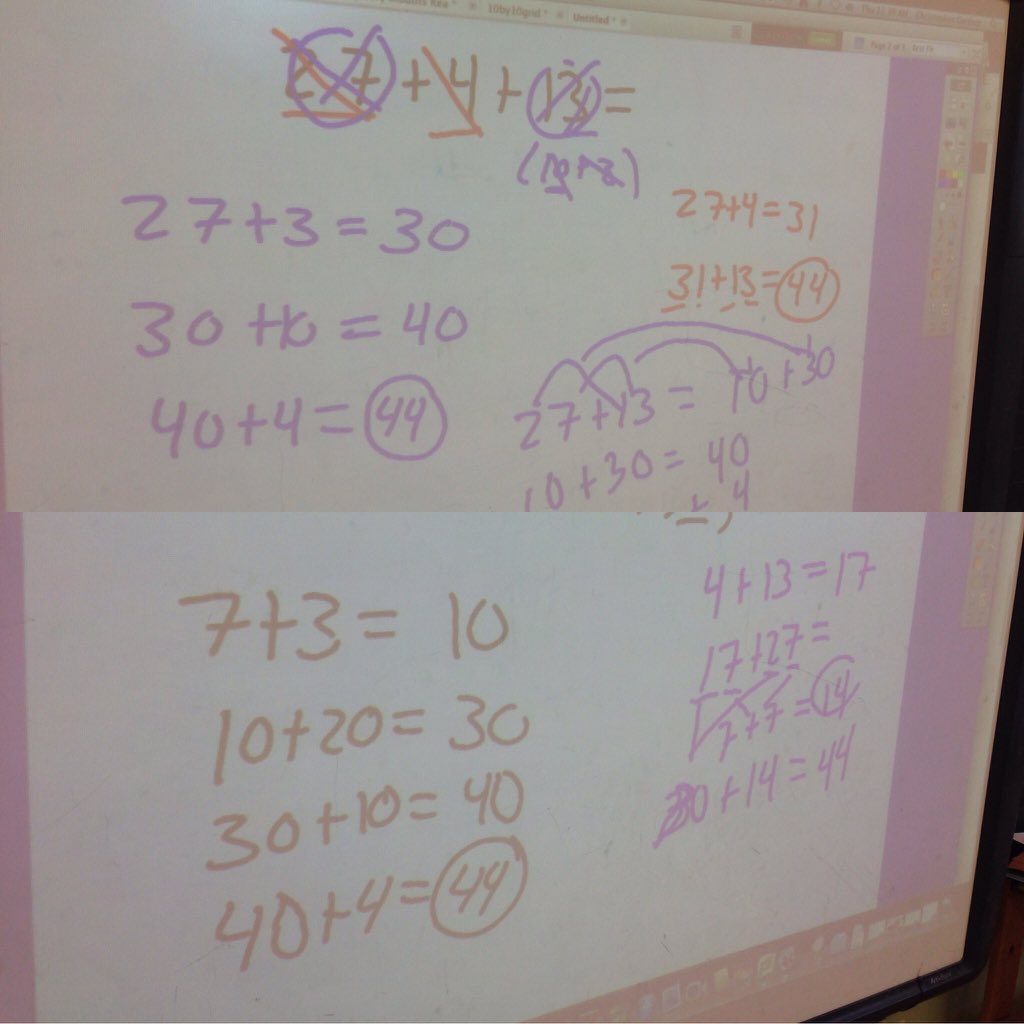 10by10grid *
Untitled *
27 + 4 + 13 =
27+3 = 30
30 + 10 = 40
40+4 = 44
27+4 = 31
31+13 = 44
27 + 13 = 10 + 30
10 + 30 = 40
+ 4
7+3 = 10
10+20 = 30
30+10 = 40
40+4 = 44
4+13 = 17
17+27 =
7+7 = 14
30+14 = 44